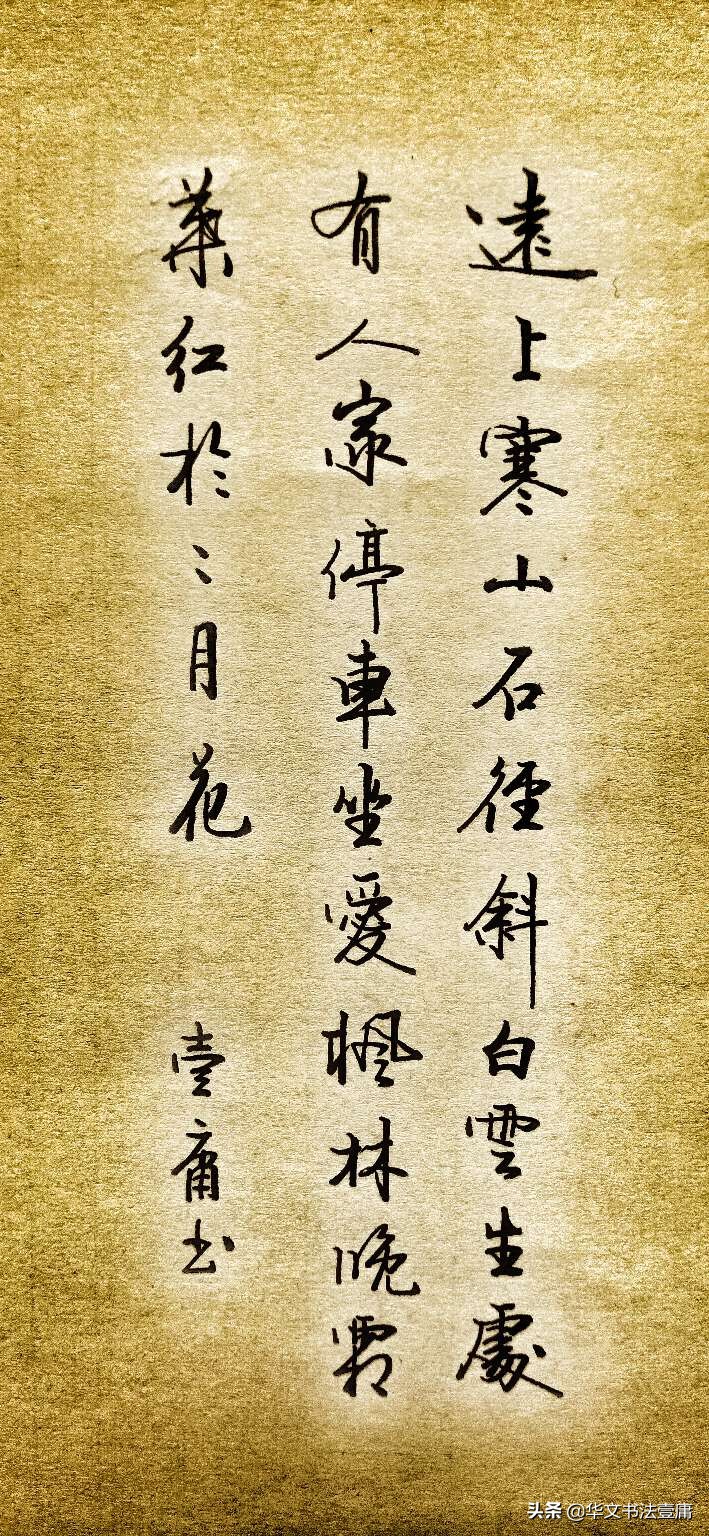 遠上寒山石徑斜白雲生處
有人家停車坐愛楓林晚霜
葉紅於二月花
壹庸书
头条 @华文书法壹庸